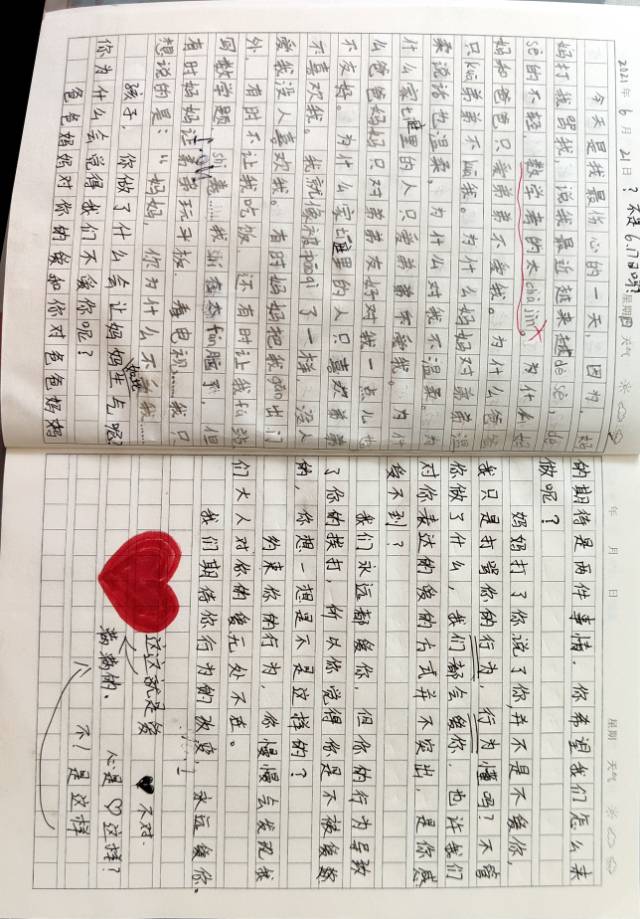 2021年6月21日？不是6.17日吗？星期四 天气
今天是我最伤心的一天，因为，妈
妈打我骂我，说我最近越来越dè sè，
sè的不轻，数学考的太chà jìn。为什么妈
妈和爸爸只爱弟弟不爱我。为什么爸爸
只kuā弟弟不kuā我。为什么妈妈对弟弟温
柔说话也温柔，为什么对我不温柔。为
什么家里的人只爱弟弟不爱我。为什
么爸爸妈妈只对弟弟友好对我一点儿也
不友好。为什么家里的人只喜欢弟弟
不喜欢我。我就像被pāoqì了一样，没人
爱我没人喜欢我。有时妈妈把我gǎn出门
外，有时不让我吃饭，还有时让我fá站，
写数学题
有时妈妈让弟弟玩平板，看电视……我只
想说的是：“妈妈，你为什么不爱我……
孩子，你做了什么会让妈妈生气呢？
你为什么会觉得我们不爱你呢？
爸爸妈妈对你的爱和你对爸爸妈妈
年 月 日 星期 天气
的期待是两件事情，你希望我们怎么来
做呢？
妈妈打了你，说了你，并不是不爱你，
我只是打骂你的行为，行为懂吗？不管
你做了什么，我们都会爱你，也许我们
对你表达的爱的方式并不突出，是你感
受不到？
我们永远都爱你，但你的行为导致
了你的挨打，所以你觉得你是不被爱
的，你想一想是不是这样的？
约束你的行为，你慢慢会发现我
们大人对你的爱无处不在。
我们期待你行为的改变，永远爱你。
这这就是爱 不对。
心是♡这样？
不！是这样